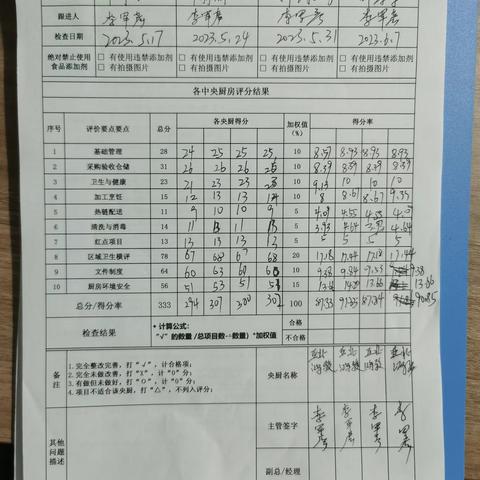 跟进人 李军彦 李军彦 李军彦
检查日期 2023.5.17 2023.5.24 2023.5.31 2023.6.7
绝对禁止使用食品添加剂 □ 有使用违禁添加剂 □ 有使用违禁添加剂 □ 有使用违禁添加剂 □ 有使用违禁添加剂
□ 有拍摄图片 □ 有拍摄图片 □ 有拍摄图片 □ 有拍摄图片
各中央厨房评分结果
序号 评价要点要点 总分 各央厨得分 加权值(%) 得分率
1 基础管理 28 24 25 25 25 10 8.57 8.93 8.93 8.93
2 采购验收仓储 31 26 26 26 26 10 8.39 8.39 8.39 8.39
3 卫生与健康 23 21 23 23 23 10 9.13 10 10 10
4 加工烹饪 15 12 13 13 14 10 8 8.67 8.67 9.33
5 热链配送 11 9 10 10 9 5 4.09 4.55 4.55 4.09
6 清洗与消毒 14 11 13 11 13 5 3.93 4.64 4.64
7 红点项目 13 13 13 13 13 5 5 5 5 5
8 区域卫生横评 78 67 68 67 68 20 17.18 17.44 17.18 17.44
9 文件制度 64 60 63 60 10 9.38 9.84 9.38
10 厨房环境安全 56 51 53 51 15 13.66 14.20 13.66 13.66
总分/得分率 333 294 307 300 100 87.33 90.85
检查结果 * 计算公式: 合格
"√"的数量 /总项目数-÷数量）*加权值 不合格
备注
1.完全整改完善，打"√"，计合格项；
2.完全未做改善，打"X"，计"0"分；
3.有做但未做好，打"O"，计"0"分；
4.项目不适合该央厨，打"△"，不列入评分；
央厨名称
主管签字 李军彦 李军彦 李军彦 李军彦
其他问题描述
副总/经理